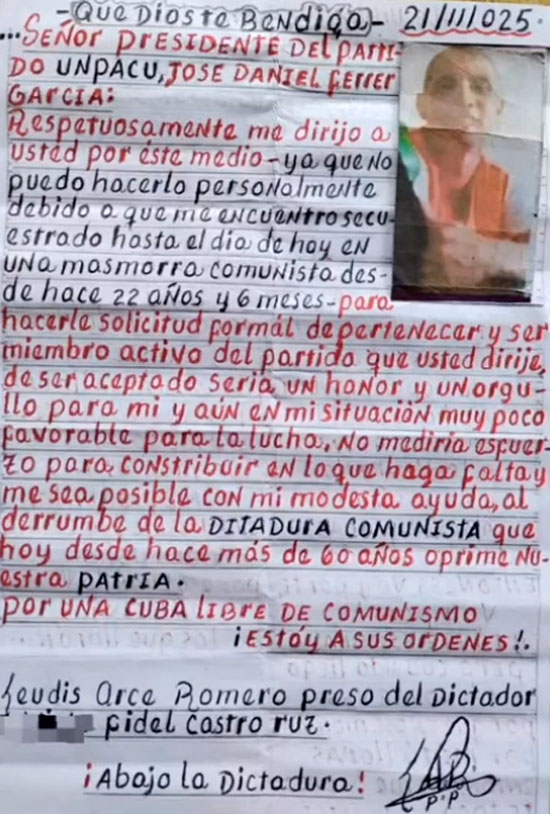 -Que Dios te Bendiga- 21/11/025.
...SEÑOR PRESIDENTE DEL PARTI-
DO UNPACU, JOSE DANIEL FERRER
GARCIA:
Respetuosamente me dirijo a
usted por éste medio-ya que no
puedo hacerlo personalmente
debido a que me encuentro secu-
estrado hasta el dia de hoy en
una masmorra comunista des-
de hace 22 años y 6 meses-para
hacerle solicitud formál de pertenecer y ser
miembro activo del partido que usted dirije,
de ser aceptado seria un honor y un orgu-
llo para mi y aún en mi situación muy poco
favorable para la lucha, no mediria esfuer-
zo para constribuir en lo que haga falta y
me sea posible con mi modesta ayuda, al
derrumbe de la DITADURA COMUNISTA que
hoy desde hace más de 60 años oprime nu-
estra PATRIA.
POR UNA CUBA LIBRE DE COMUNISMO
¡ESTÓY A SUS ORDENES!.
Leudis Arce Romero preso del Dictador
Fidel Castro Ruz.
¡Abajo la Dictadura!
P.P.